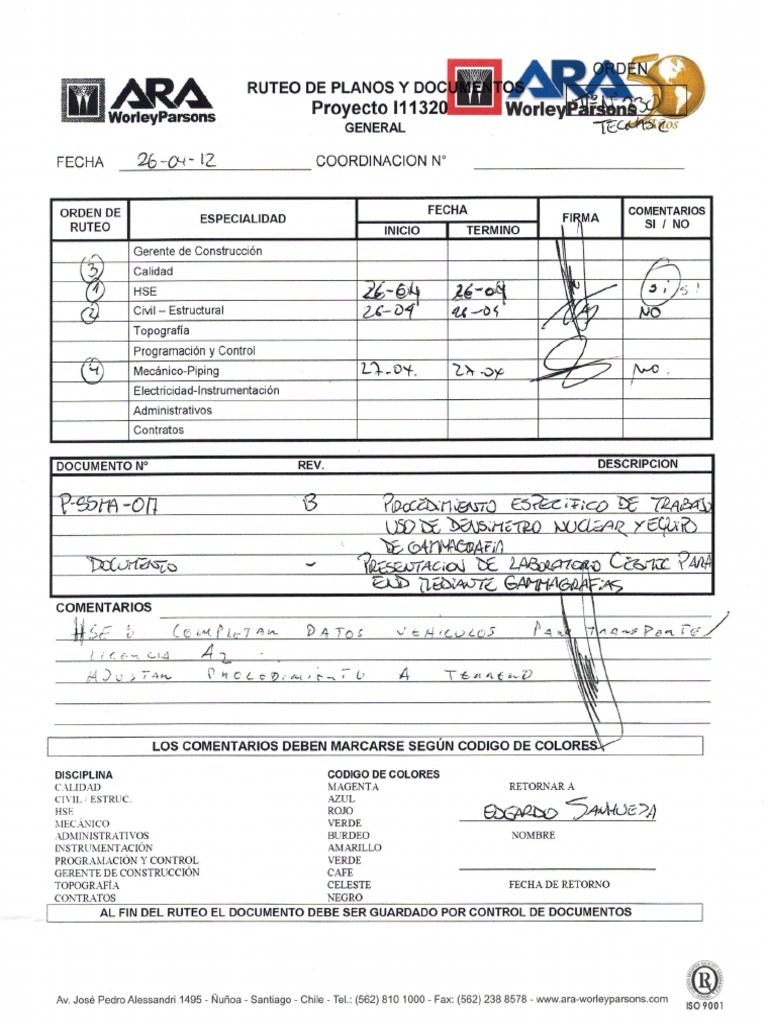 ARA
WorleyParsons
RUTEO DE PLANOS Y DOCUMENTOS
Proyecto I11320
GENERAL
ARA
WorleyParsons
50
ORDEN
TECNASIC
FECHA 26-04-12 COORDINACION N°
ORDEN DE RUTEO ESPECIALIDAD FECHA FIRMA COMENTARIOS SI / NO
INICIO TERMINO
Gerente de Construcción
3 Calidad
1 HSE 26-04 26-04 si si!
2 Civil – Estructural 26-04 26-04 NO
Topografía
Programación y Control
4 Mecánico-Piping 27-04. 27-04 NO.
Electricidad-Instrumentación
Administrativos
Contratos
DOCUMENTO N° REV. DESCRIPCION
P-SSMA-017 B PROCEDIMIENTO ESPECIFICO DE TRABAJO
USO DE DENSIMETRO NUCLEAR Y EQUIPO
DE GAMMAGRAFIA
DOCUMENTO - PRESENTACION DE LABORATORIO CESMEC PARA
END MEDIANTE GAMMAGRAFIAS
COMENTARIOS
HSE: COMPLETAR DATOS VEHICULOS PARA TRANSPORTE/
LICENCIA A2
AJUSTAR PROCEDIMIENTO A TERRENO
LOS COMENTARIOS DEBEN MARCARSE SEGÚN CODIGO DE COLORES
DISCIPLINA CODIGO DE COLORES
CALIDAD MAGENTA RETORNAR A
CIVIL / ESTRUC. AZUL
HSE ROJO EDGARDO SANHUEZA
MECÁNICO VERDE
ADMINISTRATIVOS BURDEO NOMBRE
INSTRUMENTACIÓN AMARILLO
PROGRAMACIÓN Y CONTROL VERDE
GERENTE DE CONSTRUCCIÓN CAFE
TOPOGRAFÍA CELESTE FECHA DE RETORNO
CONTRATOS NEGRO
AL FIN DEL RUTEO EL DOCUMENTO DEBE SER GUARDADO POR CONTROL DE DOCUMENTOS
Av. José Pedro Alessandri 1495 - Ñuñoa - Santiago - Chile - Tel.: (562) 810 1000 - Fax: (562) 238 8578 - www.ara-worleyparsons.com
R
ISO 9001